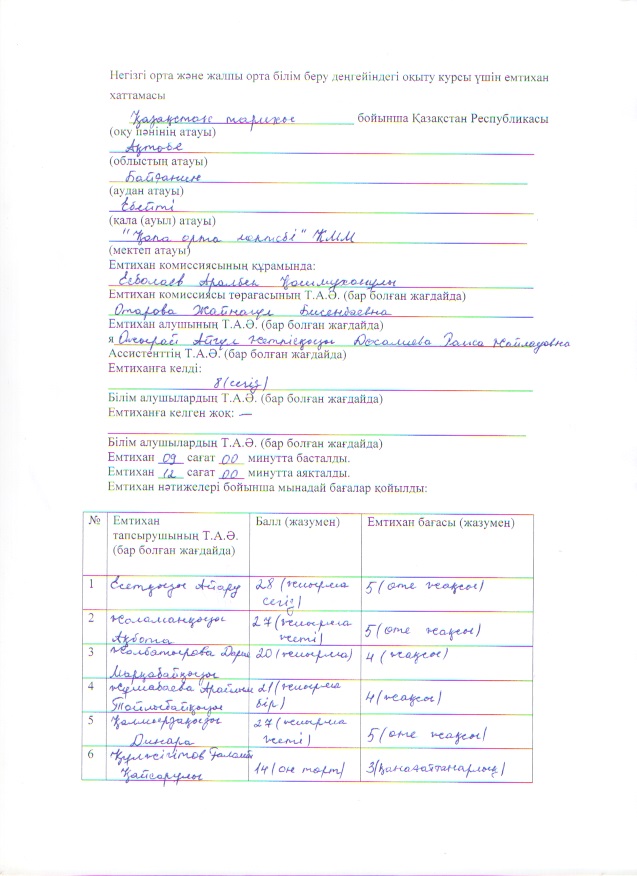 Негізгі орта және жалпы орта білім беру деңгейіндегі оқыту курсы үшін емтихан
хаттамасы
Қазақстан тарихы бойынша Қазақстан Республикасы
(оқу пәнінің атауы)
Ақтөбе
(облыстың атауы)
Байғанин
(аудан атауы)
Ебейті
(қала (ауыл) атауы)
" орта мектебі" КММ
(мектеп атауы)
Емтихан комиссиясының құрамында:
Аралбек
Емтихан комиссиясы төрағасының Т.А.Ә. (бар болған жағдайда)
Отарова Жайнагул Бисенбаевна
Емтихан алушының Т.А.Ә. (бар болған жағдайда)
я Айгул
Ассистенттің Т.А.Ә. (бар болған жағдайда)
Емтиханға келді:
8 (сегіз)
Білім алушылардың Т.А.Ә. (бар болған жағдайда)
Емтиханға келген жоқ: —
Білім алушылардың Т.А.Ә. (бар болған жағдайда)
Емтихан 09 сағат 00 минутта басталды.
Емтихан 12 сағат 00 минутта аяқталды.
Емтихан нәтижелері бойынша мынадай бағалар қойылды:
№ Емтихан тапсырушының Т.А.Ә. (бар болған жағдайда) Балл (жазумен) Емтихан бағасы (жазумен)
1 Есетқызы Айару 28 (жиырма сегіз) 5 (өте жақсы)
2 Жоламанқызы Ақбота 27 (жиырма жеті) 5 (өте жақсы)
3 Жолбатырова Дария Марқабайқызы 20 (жиырма) 4 (жақсы)
4 Жұмабаева Арайлым 21 (жиырма бір) 4 (жақсы)
5 Динара 27 (жиырма жеті) 5 (өте жақсы)
6 Құлжігітов Қайсарұлы 14 (он төрт) 3 (қанағаттанарлық)